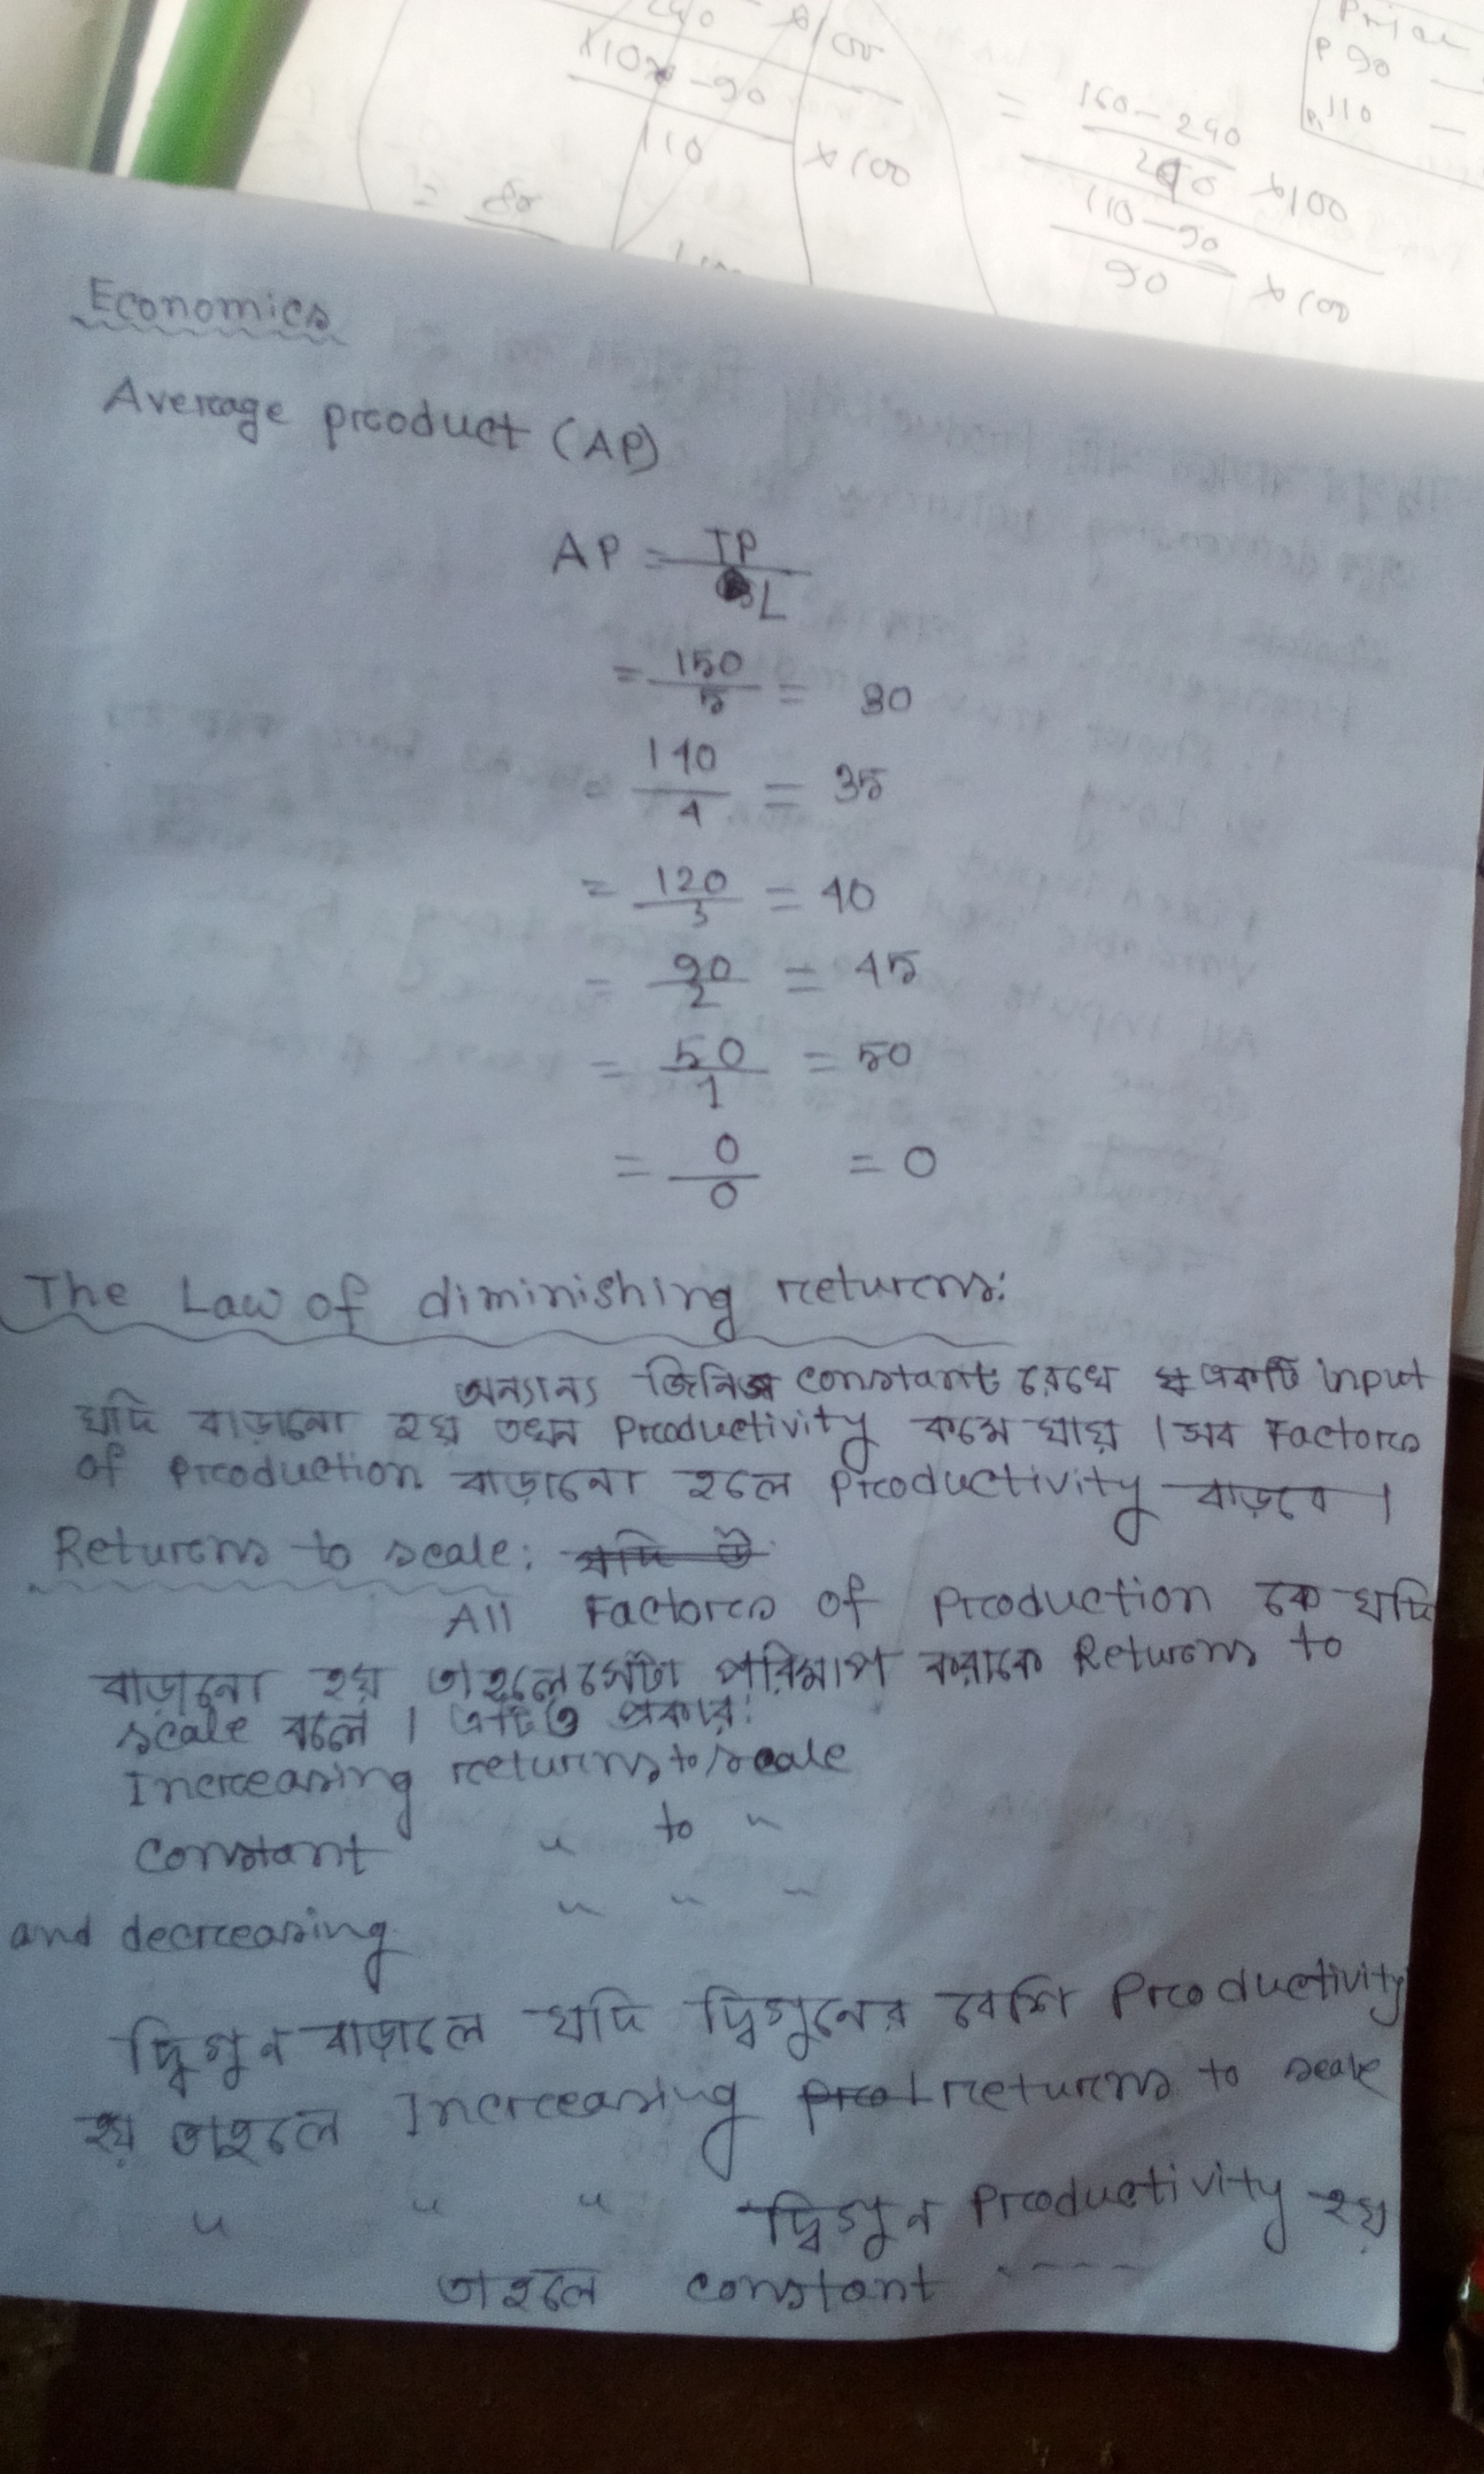 240
110 - 90
110
× 100
=
160 - 240
240
× 100
110 - 90
90
× 100
P 90
P₁ 110
=
80
Economics
Average product (AP)
AP = TP / L
= 150 / 5 = 30
= 140 / 4 = 35
= 120 / 3 = 40
= 90 / 2 = 45
= 50 / 1 = 50
= 0 / 0 = 0
The Law of diminishing returns:
অন্যান্য জিনিস constant রেখে একটি input
যদি বাড়ানো হয় তখন Productivity কমে যায়। সব Factors
of Production বাড়ানো হলে Productivity বাড়বে।
Returns to scale:
All Factors of Production কে যদি
বাড়ানো হয় তাহলে সেটা পরিমাপ করাকে Returns to
scale বলে। এটি ৩ প্রকার:
Increasing returns to scale
constant " to "
and decreasing " " "
দ্বিগুন বাড়ালে যদি দ্বিগুনের বেশি Productivity
হয় তাহলে Increasing returns to scale
" " " দ্বিগুন Productivity হয়
তাহলে constant ----